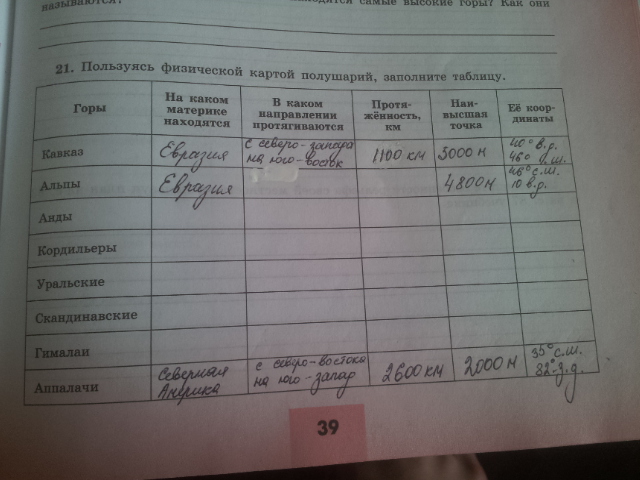 называются?
находятся самые высокие горы? Как они
21. Пользуясь физической картой полушарий, заполните таблицу.
Горы
На каком материке находятся
В каком направлении протягиваются
Протя-жённость, км
Наи-высшая точка
Её коор-динаты
Кавказ
Евразия
с северо-запада на юго-восток
1100 км
5000 м
40° в.д.
46°
Альпы
Евразия
4800 м
46° с.ш.
10 в.д.
Анды
Кордильеры
Уральские
Скандинавские
Гималаи
Аппалачи
Северная Америка
с северо-востока на юго-запад
2600 км
2000 м
35° с.ш.
82°
39